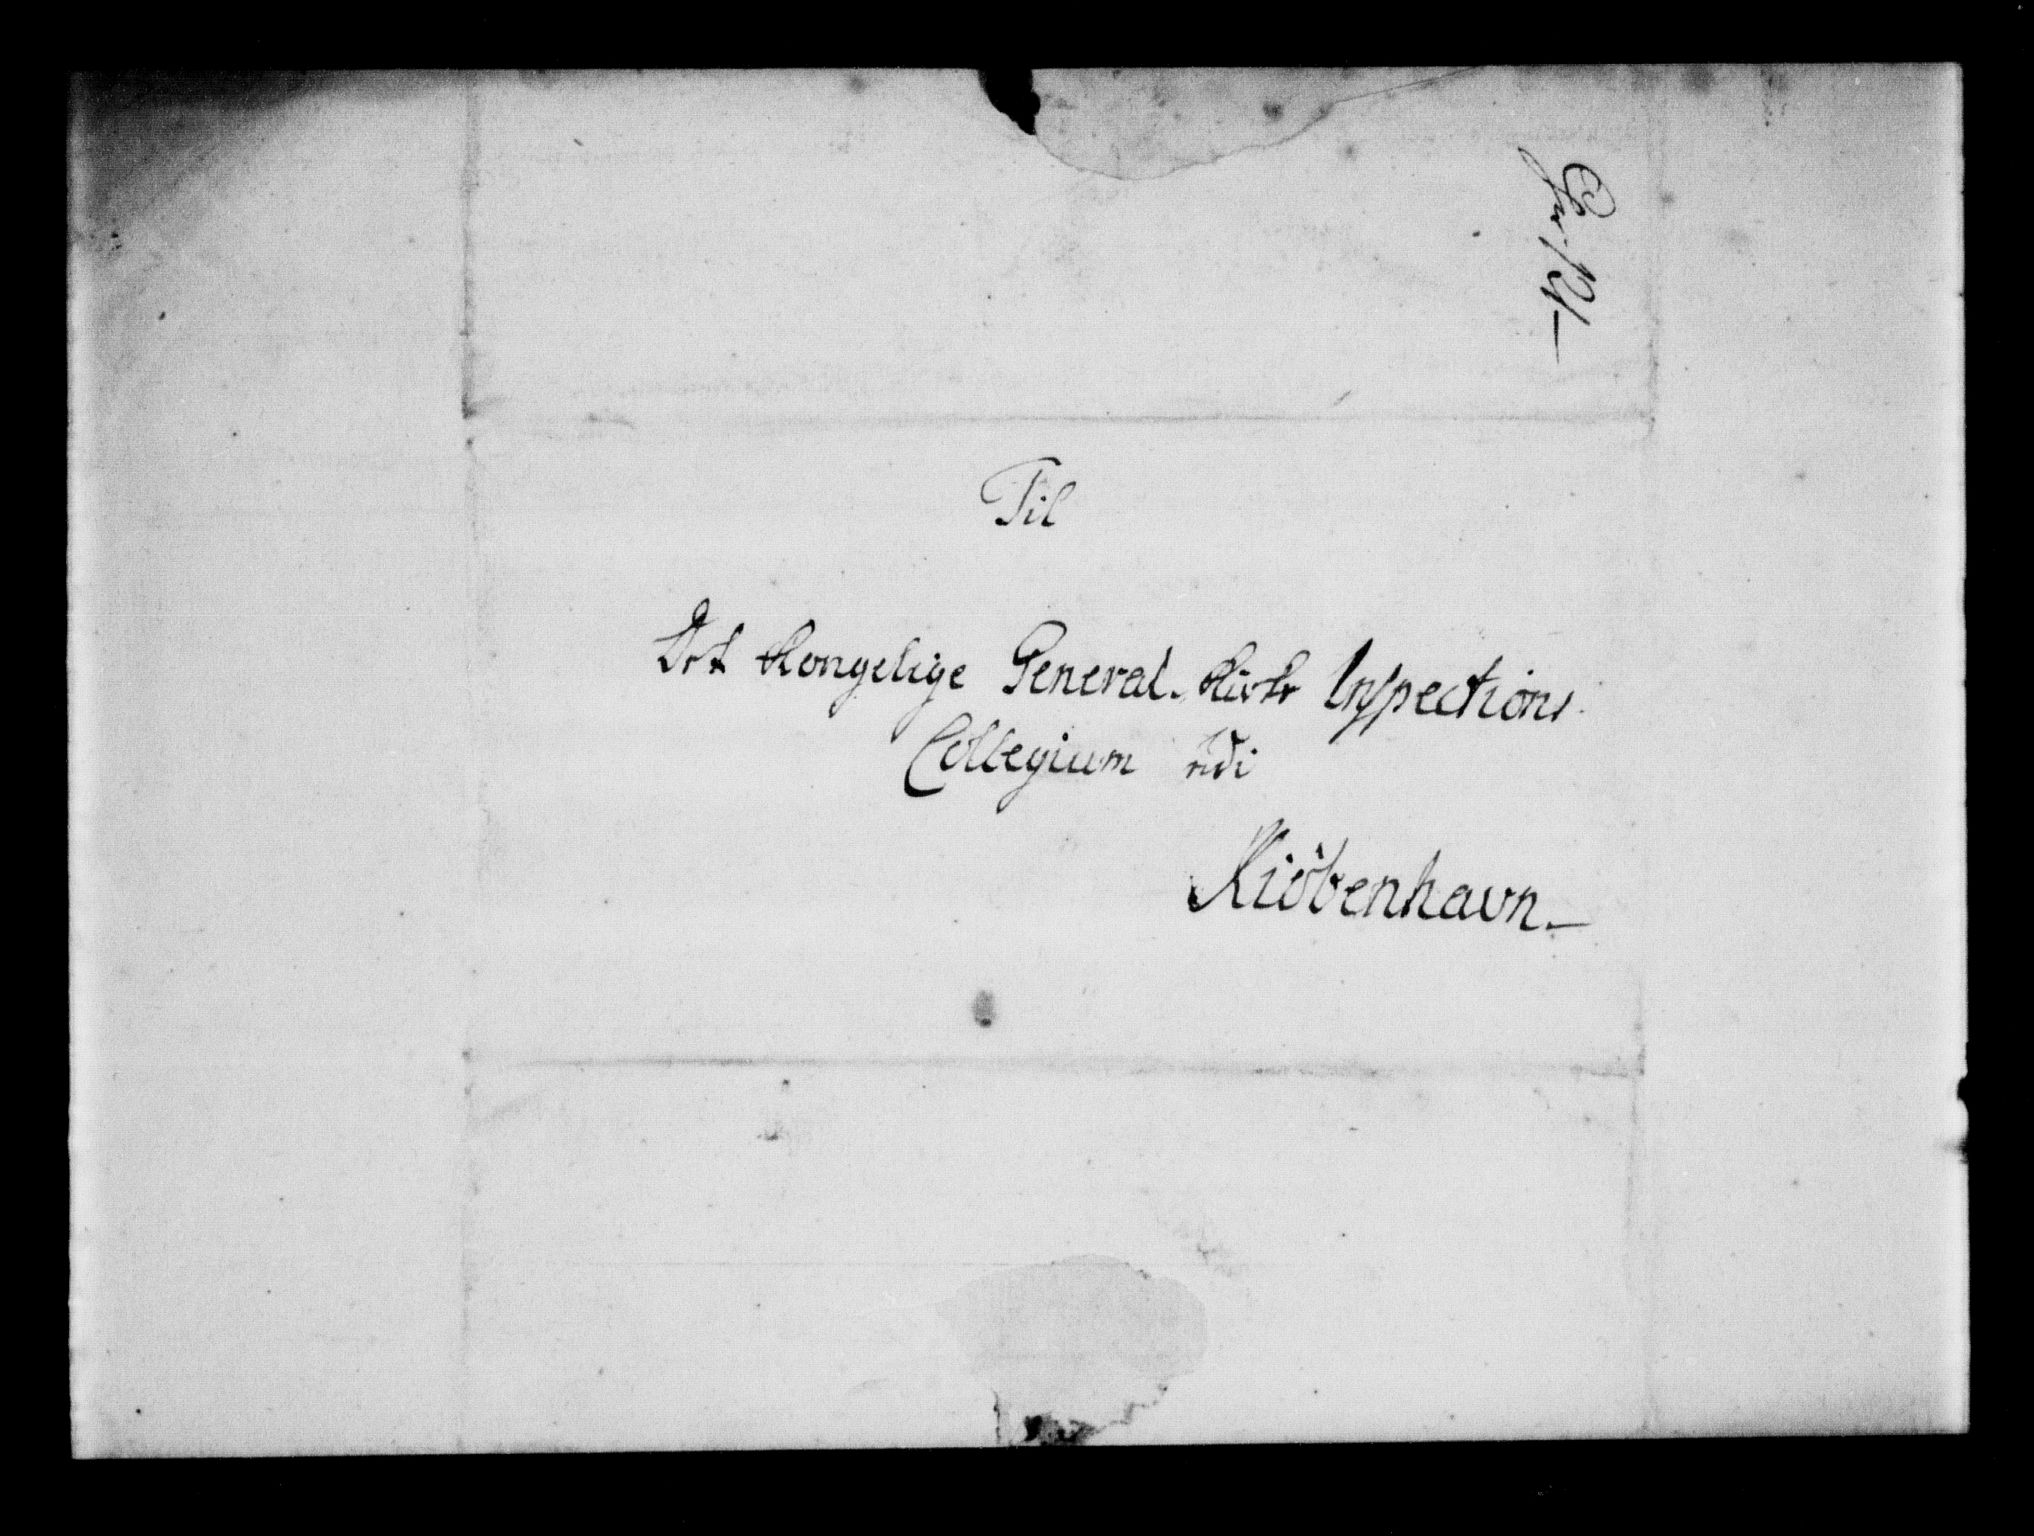 Til
Det Kongelige General-Kirke Inspections
Collegium udi
Kiöbenhavn